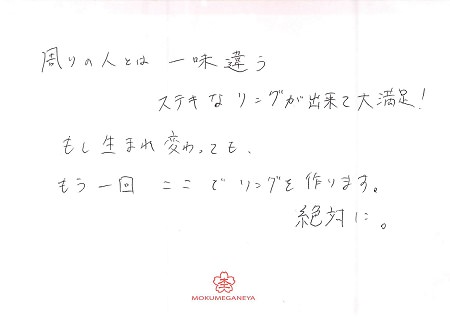 周りの人とは 一味違う
ステキな リングが出来て大満足!
もし生まれ変わっても、
もう一回 ここで リングを作ります。
絶対に。
MOKUMEGANEYA